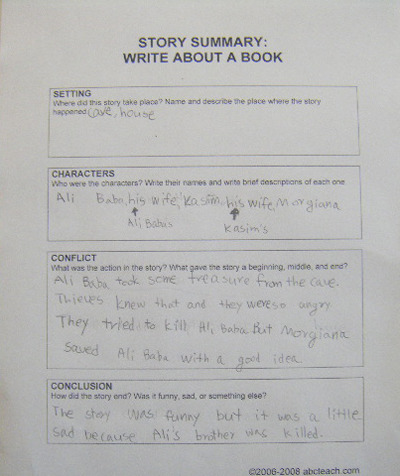 STORY SUMMARY:
WRITE ABOUT A BOOK
SETTING
Where did this story take place? Name and describe the place where the story
happened. cave, house
CHARACTERS
Who were the characters? Write their names and write brief descriptions of each one.
Ali Baba, his wife, Kasim, his wife, Morgiana
Ali Baba's
Kasim's
CONFLICT
What was the action in the story? What gave the story a beginning, middle, and end?
Ali Baba took some treasure from the cave.
Thieves knew that and they were so angry
They tried to kill Ali Baba But Morgiana
saved Ali Baba with a good idea.
CONCLUSION
How did the story end? Was it funny, sad, or something else?
The story was funny but it was a little
sad because Ali's brother was killed.
©2006-2008 abcteach.com